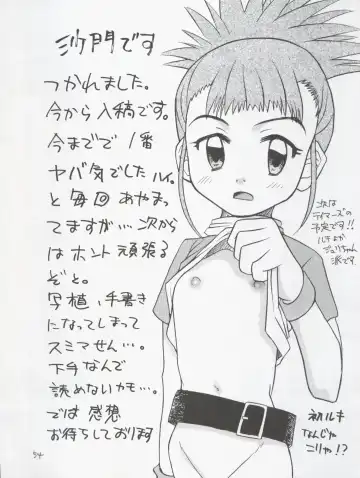 沙門です
つかれました。
今から入稿です。
今までで1番
ヤバ気でしたルイ。
と毎回あやまっ
てますが…次から
はホント頑張る
ぞと。
写植、手書き
になってしまって
スミマせん…。
下手なんで
読めないカモ…。
では感想
お待ちしております
次は
テイマーズの
予定です!!
ルキよか
ジュリちゃん
派です。
初ルキ
なんじゃ
こりゃ!?
54